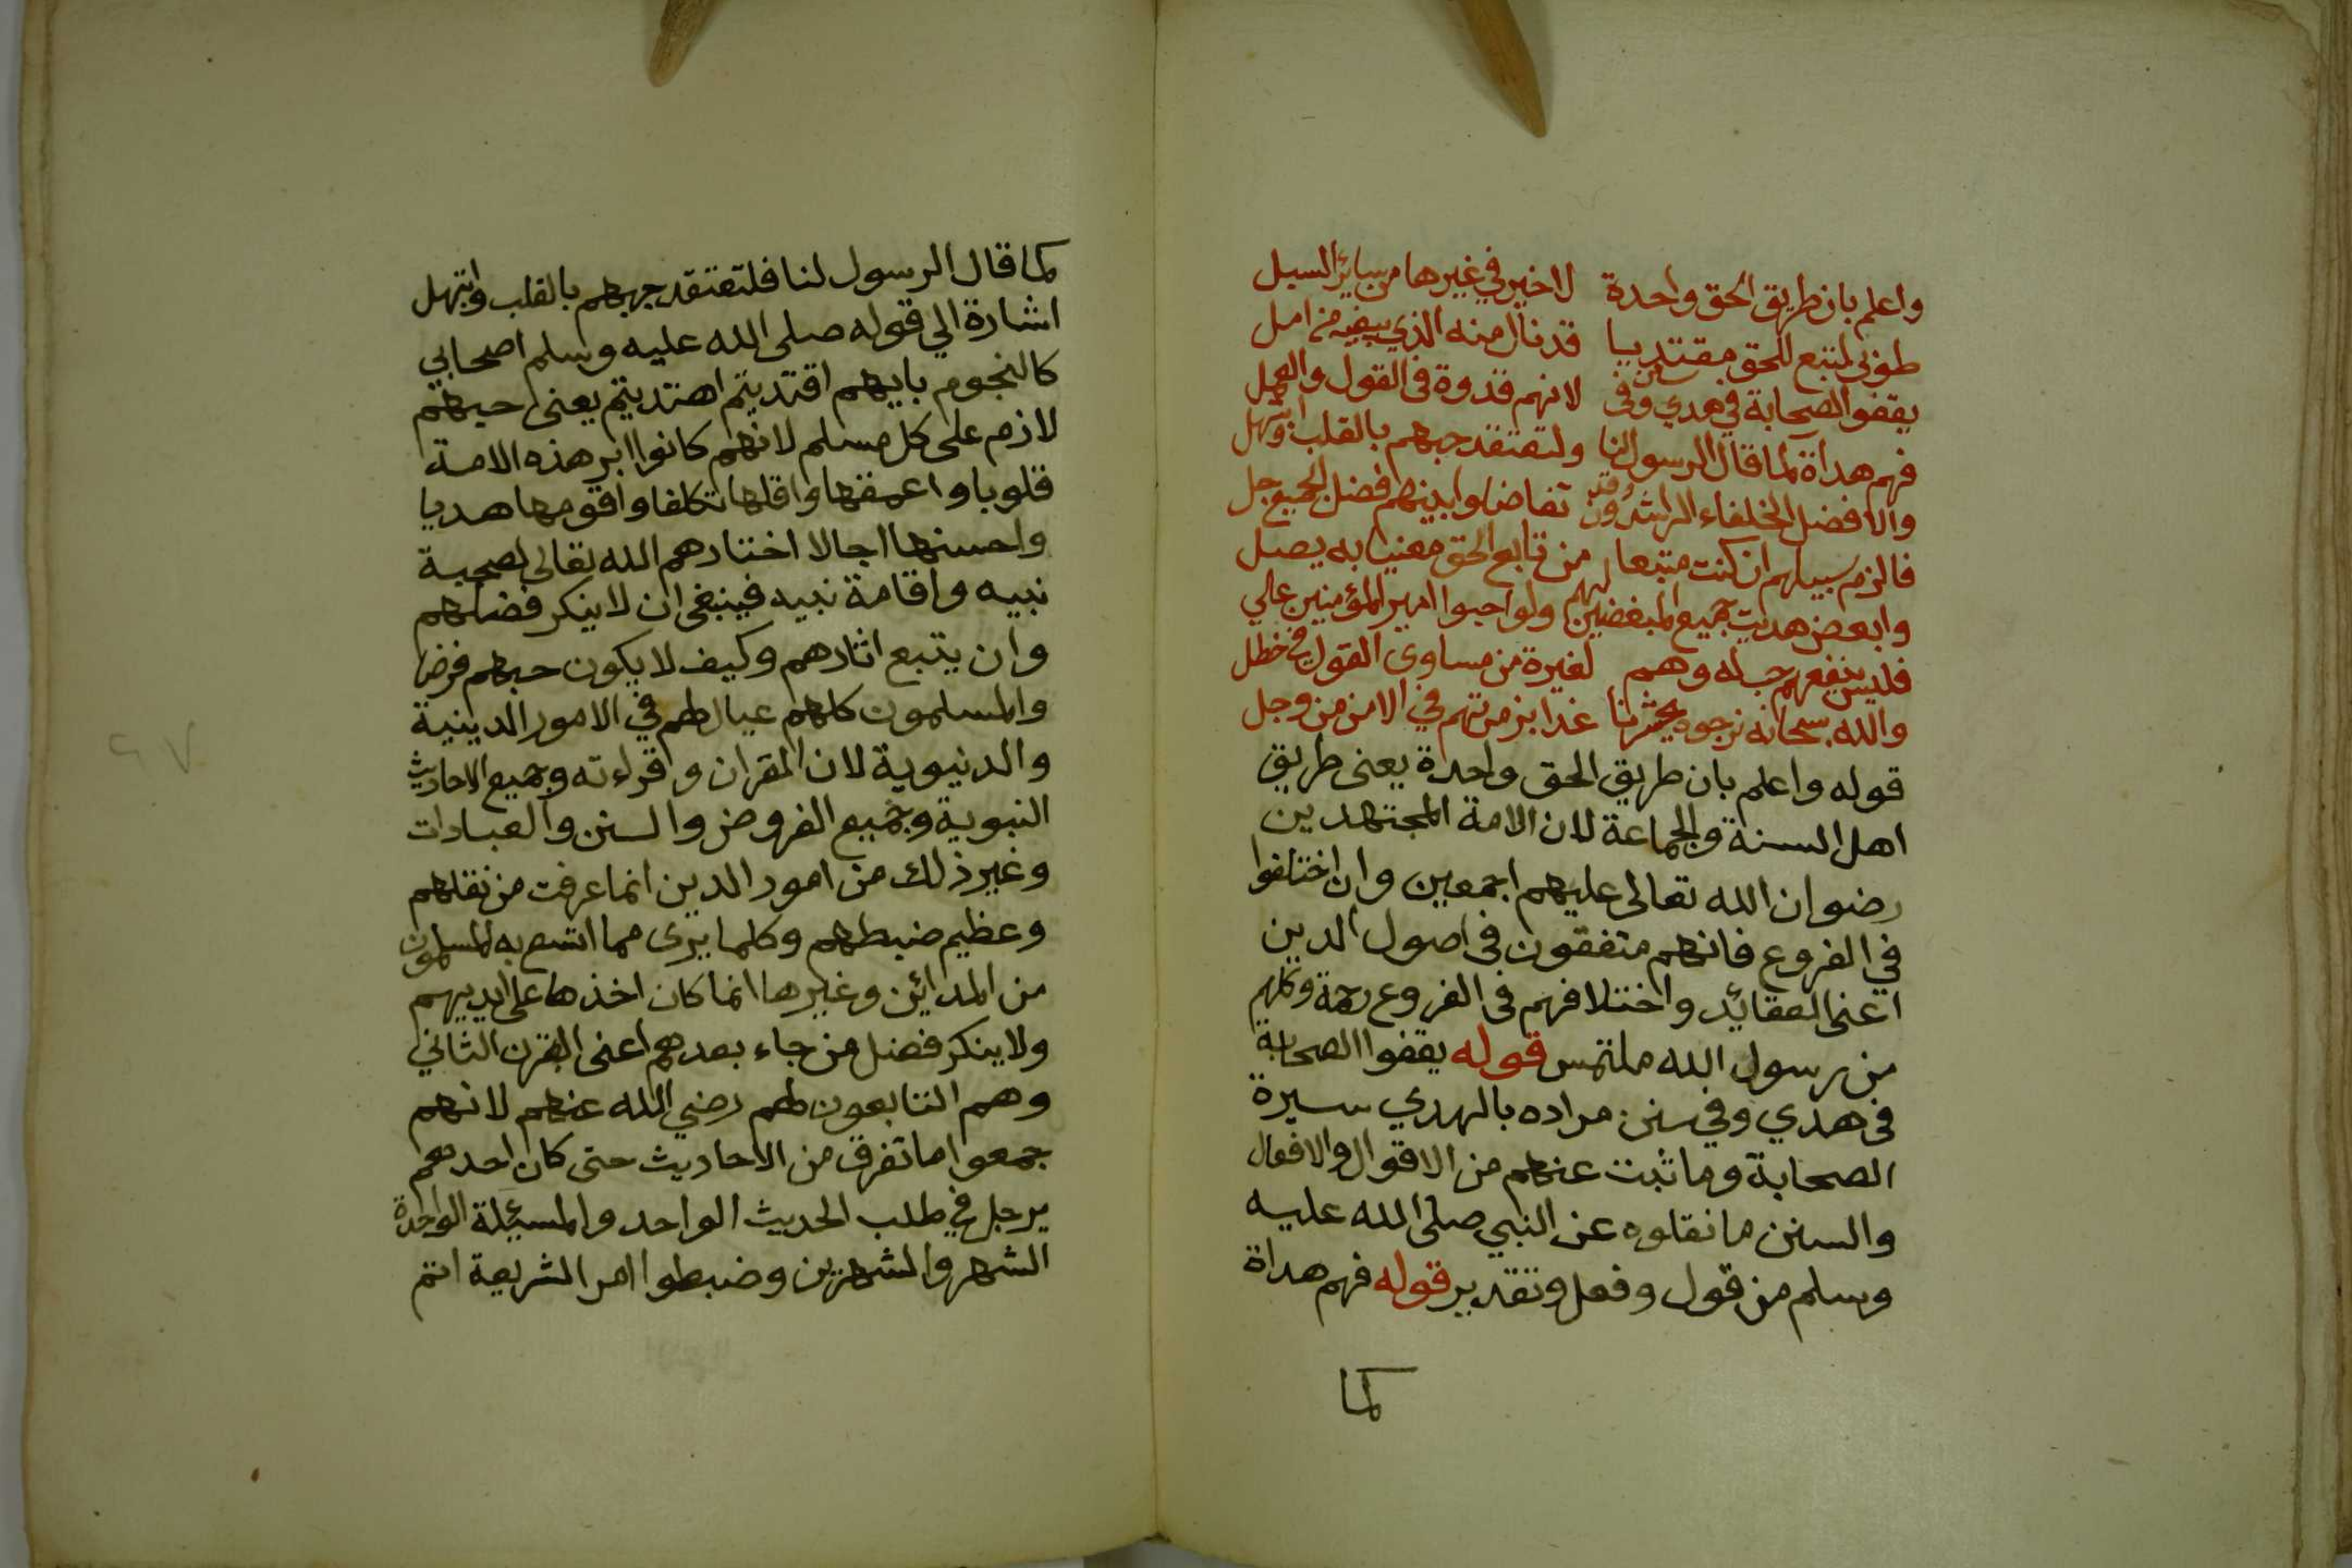 واعلم بان طريق الحق واحدة لا خير في غيرها من سائر السبل
طوبى لمتبع للحق مقتديا قد نال منه الذي يبغيه من امل
يقفوا الصحابة في هدي وفي سنن لانهم قدوة في القول والعمل
فهم هداة كما قال الرسول لنا ولتعتقد حبهم بالقلب وابتهل
والافضل الخلفاء الراشدون وقد تفاضلوا بينهم فضل الجميع جل
فالزم سبيلهم ان كنت متبعا من تابع الحق معنيا به يصل
وابعض هديت جميع المبغضين لهم ولو احبوا امير المؤمنين علي
فليس ينفعهم حب له وهم لغيره من مساوى القول في خطل
والله سبحانه نرجوه يحشرنا غدا بزمرتهم في الامن من وجل
قوله واعلم بان طريق الحق واحدة يعنى طريق
اهل السنة والجماعة لان الامة المجتهدين
رضوان الله تعالى عليهم اجمعين وان اختلفوا
في الفروع فانهم متفقون في اصول الدين
اعنى العقائد واختلافهم في الفروع رحمة وكلهم
من رسول الله ملتمس قوله يقفوا الصحابة
في هدي وفي سنن مراده بالهدي سيرة
الصحابة وما ثبت عنهم من الاقوال والافعال
والسنن ما نقلوه عن النبي صلى الله عليه
وسلم من قول وفعل وتقدير قوله فهم هداة
كما
كما قال الرسول لنا فلتعتقد حبهم بالقلب وابتهل
اشارة الي قوله صلى الله عليه وسلم اصحابي
كالنجوم بايهم اقتديتم اهتديتم يعنى حبهم
لازم على كل مسلم لانهم كانوا ابر هذه الامة
قلوبا واعمقها واقلها تكلفا واقومها هديا
واحسنها اجالا اختارهم الله تعالى لصحبة
نبيه واقامة نبيه فينبغى ان لا ينكر فضلهم
وان يتبع اثارهم وكيف لا يكون حبهم فرضا
والمسلمون كلهم عيال لهم في الامور الدينية
والدنيوية لان القران وقراءته وجميع الاحاديث
النبوية وجميع الفروض والسنن والعبادات
وغير ذلك من امور الدين انما عرفت من نقلهم
وعظيم ضبطهم وكلما يرى مما اتسع به المسلمون
من المدائن وغيرها انما كان اخذها على ايديهم
ولا ينكر فضل من جاء بعدهم اعنى القرن الثاني
وهم التابعون لهم رضي الله عنهم لانهم
جمعوا ما تفرق من الاحاديث حتى كان احدهم
يرحل في طلب الحديث الواحد والمسئلة الواحدة
الشهر والشهرين وضبطوا امر الشريعة اتم